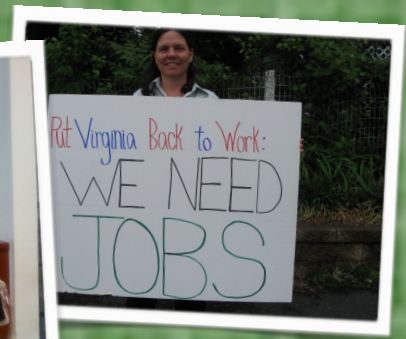 Put Virginia Back to Work:
WE NEED
JOBS